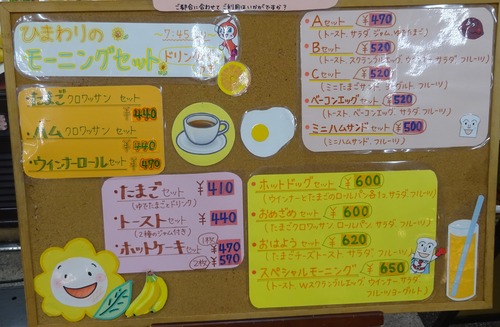 ご都合に合わせてご利用はいかがですか?
ひまわりの
モーニングセット
ドリンク
Aセット ¥470
(トースト、サラダ、ジャム、ゆでたまご)
Bセット ¥520
(トースト、スクランブルエッグ、ウインナー、サラダ、フルーツ)
Cセット ¥520
(ミニたまごサンド、ヨーグルト、フルーツ)
ベーコンエッグセット ¥520
(トースト、ベーコンエッグ、サラダ、フルーツ)
ミニハムサンドセット ¥500
(ミニハムサンド、フルーツ)
・たまごクロワッサンセット
¥440
・ハムクロワッサンセット
¥440
・ウインナーロールセット ¥470
・たまごセット ¥410
(ゆでたまごとドリンク)
・トーストセット ¥440
(2種のジャム付き)
・ホットケーキセット 1枚 ¥470
2枚 ¥570
・ホットドッグセット ¥600
(ウインナーとたまごのロールパン各1コ、サラダ、フルーツ)
・おめざめセット ¥600
(たまごクロワッサン、ロールパン、サラダ、フルーツ)
・おはようセット ¥620
(たまごチーズトースト、サラダ、フルーツ)
・スペシャルモーニング ¥650
(トースト、Wスクランブルエッグ、ウインナー、サラダ、
フルーツヨーグルト)